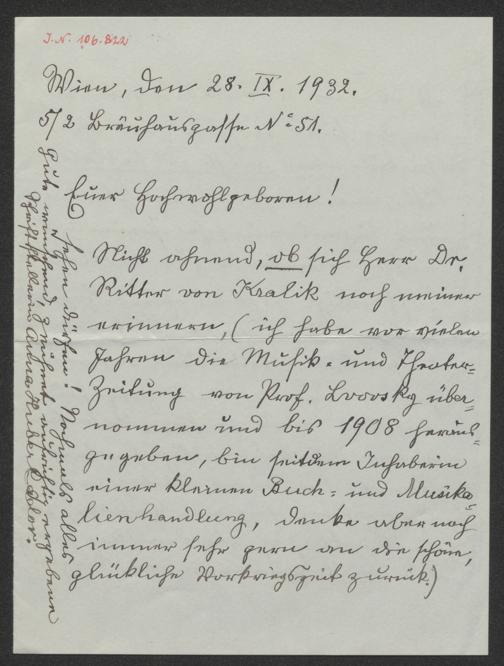 I.N. 106.822
Wien, den 28. IX. 1932.
5/2 Bräuhausgasse No 51.
Euer Hochwohlgeboren!
Nicht ahnend, ob sich Herr Dr.
Ritter von Kralik noch meiner
erinnern, (ich habe vor vielen
Jahren die Musik- und Theater=
Zeitung von Prof. Lvovsky über=
nommen und bis 1908 heraus=
gegeben, bin seitdem Inhaberin
einer kleinen Buch- und Musika=
lienhandlung, denke aber noch
immer sehr gern an die schöne,
glückliche Vorkriegszeit zurück.)
sehen dürfen! Nochmals alles
Gute wünschend, zeichnet aufrichtig ergebene
Schriftstellerin Anna